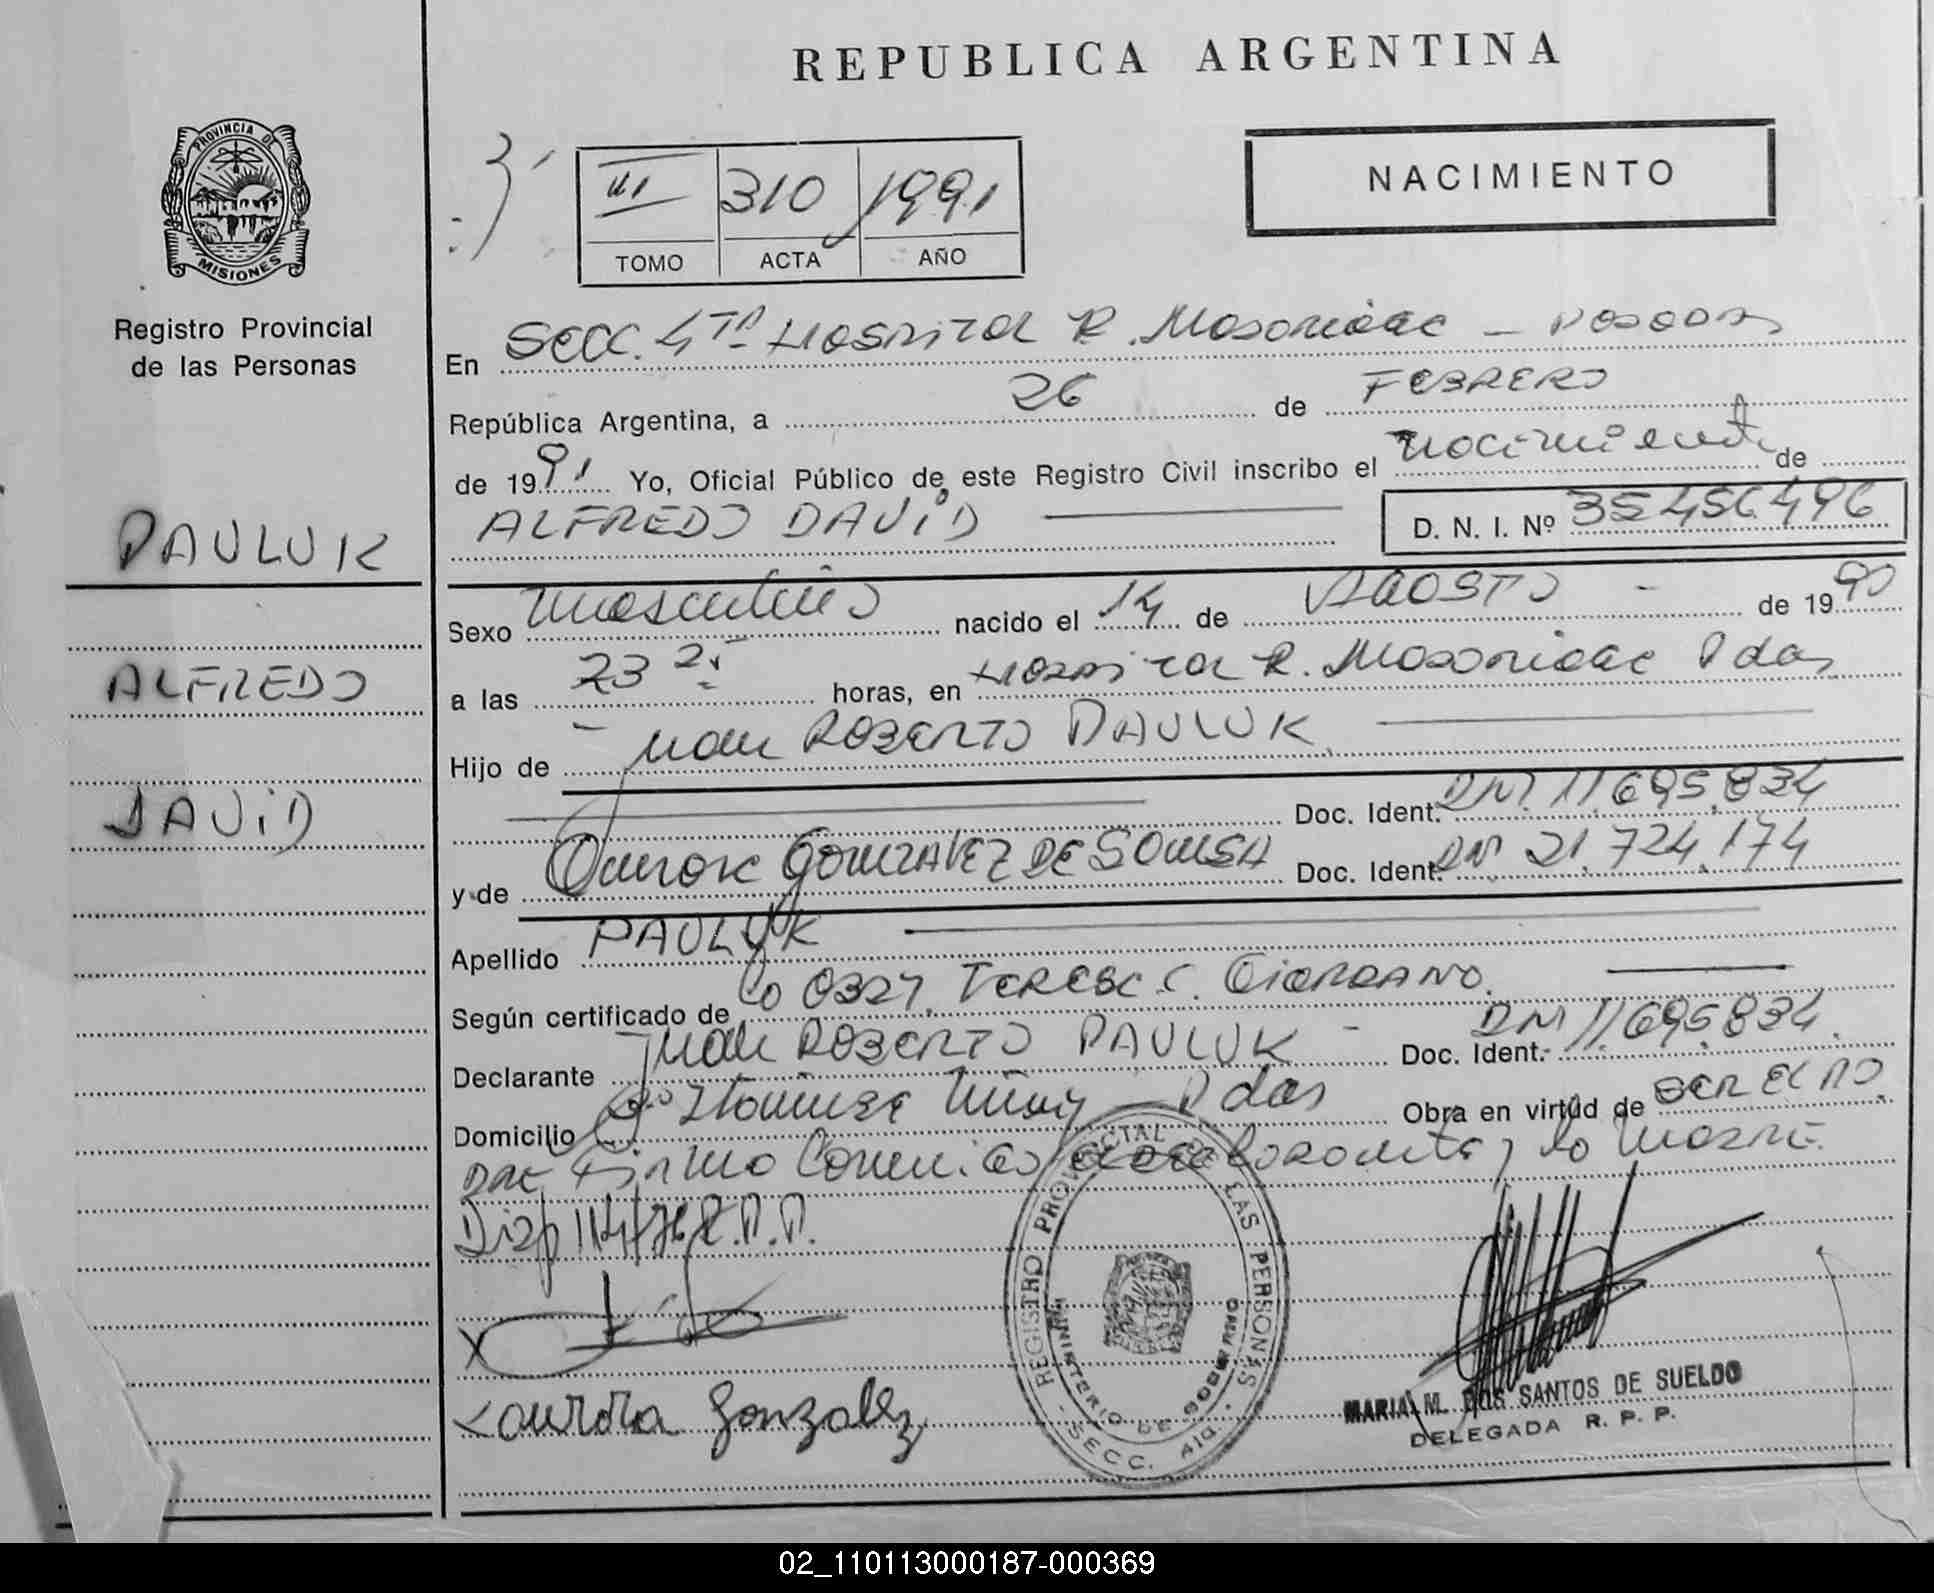 REPUBLICA ARGENTINA
PROVINCIA DE
MISIONES
Registro Provincial
de las Personas
III 310 1991
TOMO ACTA AÑO
NACIMIENTO
En Secc. 4ta Hospital R. Madariaga - Posadas
República Argentina, a 26 de FEBRERO
de 1991 Yo, Oficial Público de este Registro Civil inscribo el nacimiento de
ALFREDO DAVID D. N. I. Nº 35456496
PAULUK
ALFREDO
DAVID
Sexo masculino nacido el 14 de AGOSTO - de 1990
a las 23 horas, en Hospital R. Madariaga Pdas
Hijo de Juan ROBERTO PAULUK
Doc. Ident. DNI 11.695.834
y de GONZALEZ DE SOUSA Doc. Ident. DNI 21.724.174
Apellido PAULUK
Según certificado de la Obst. TERESA C. GIORDANO.
Declarante Juan ROBERTO PAULUK - Doc. Ident. DNI 11.695.834
Domicilio Pdas Obra en virtud de DERECHO
la madre
Disp 114/76 R.P.P.
X
Laurora Gonzalez
REGISTRO PROVINCIAL DE LAS PERSONAS
MINISTERIO DE GOBIERNO
SECC. 4ta.
MARIA M. DOS SANTOS DE SUELDO
DELEGADA R. P. P.
02_110113000187-000369